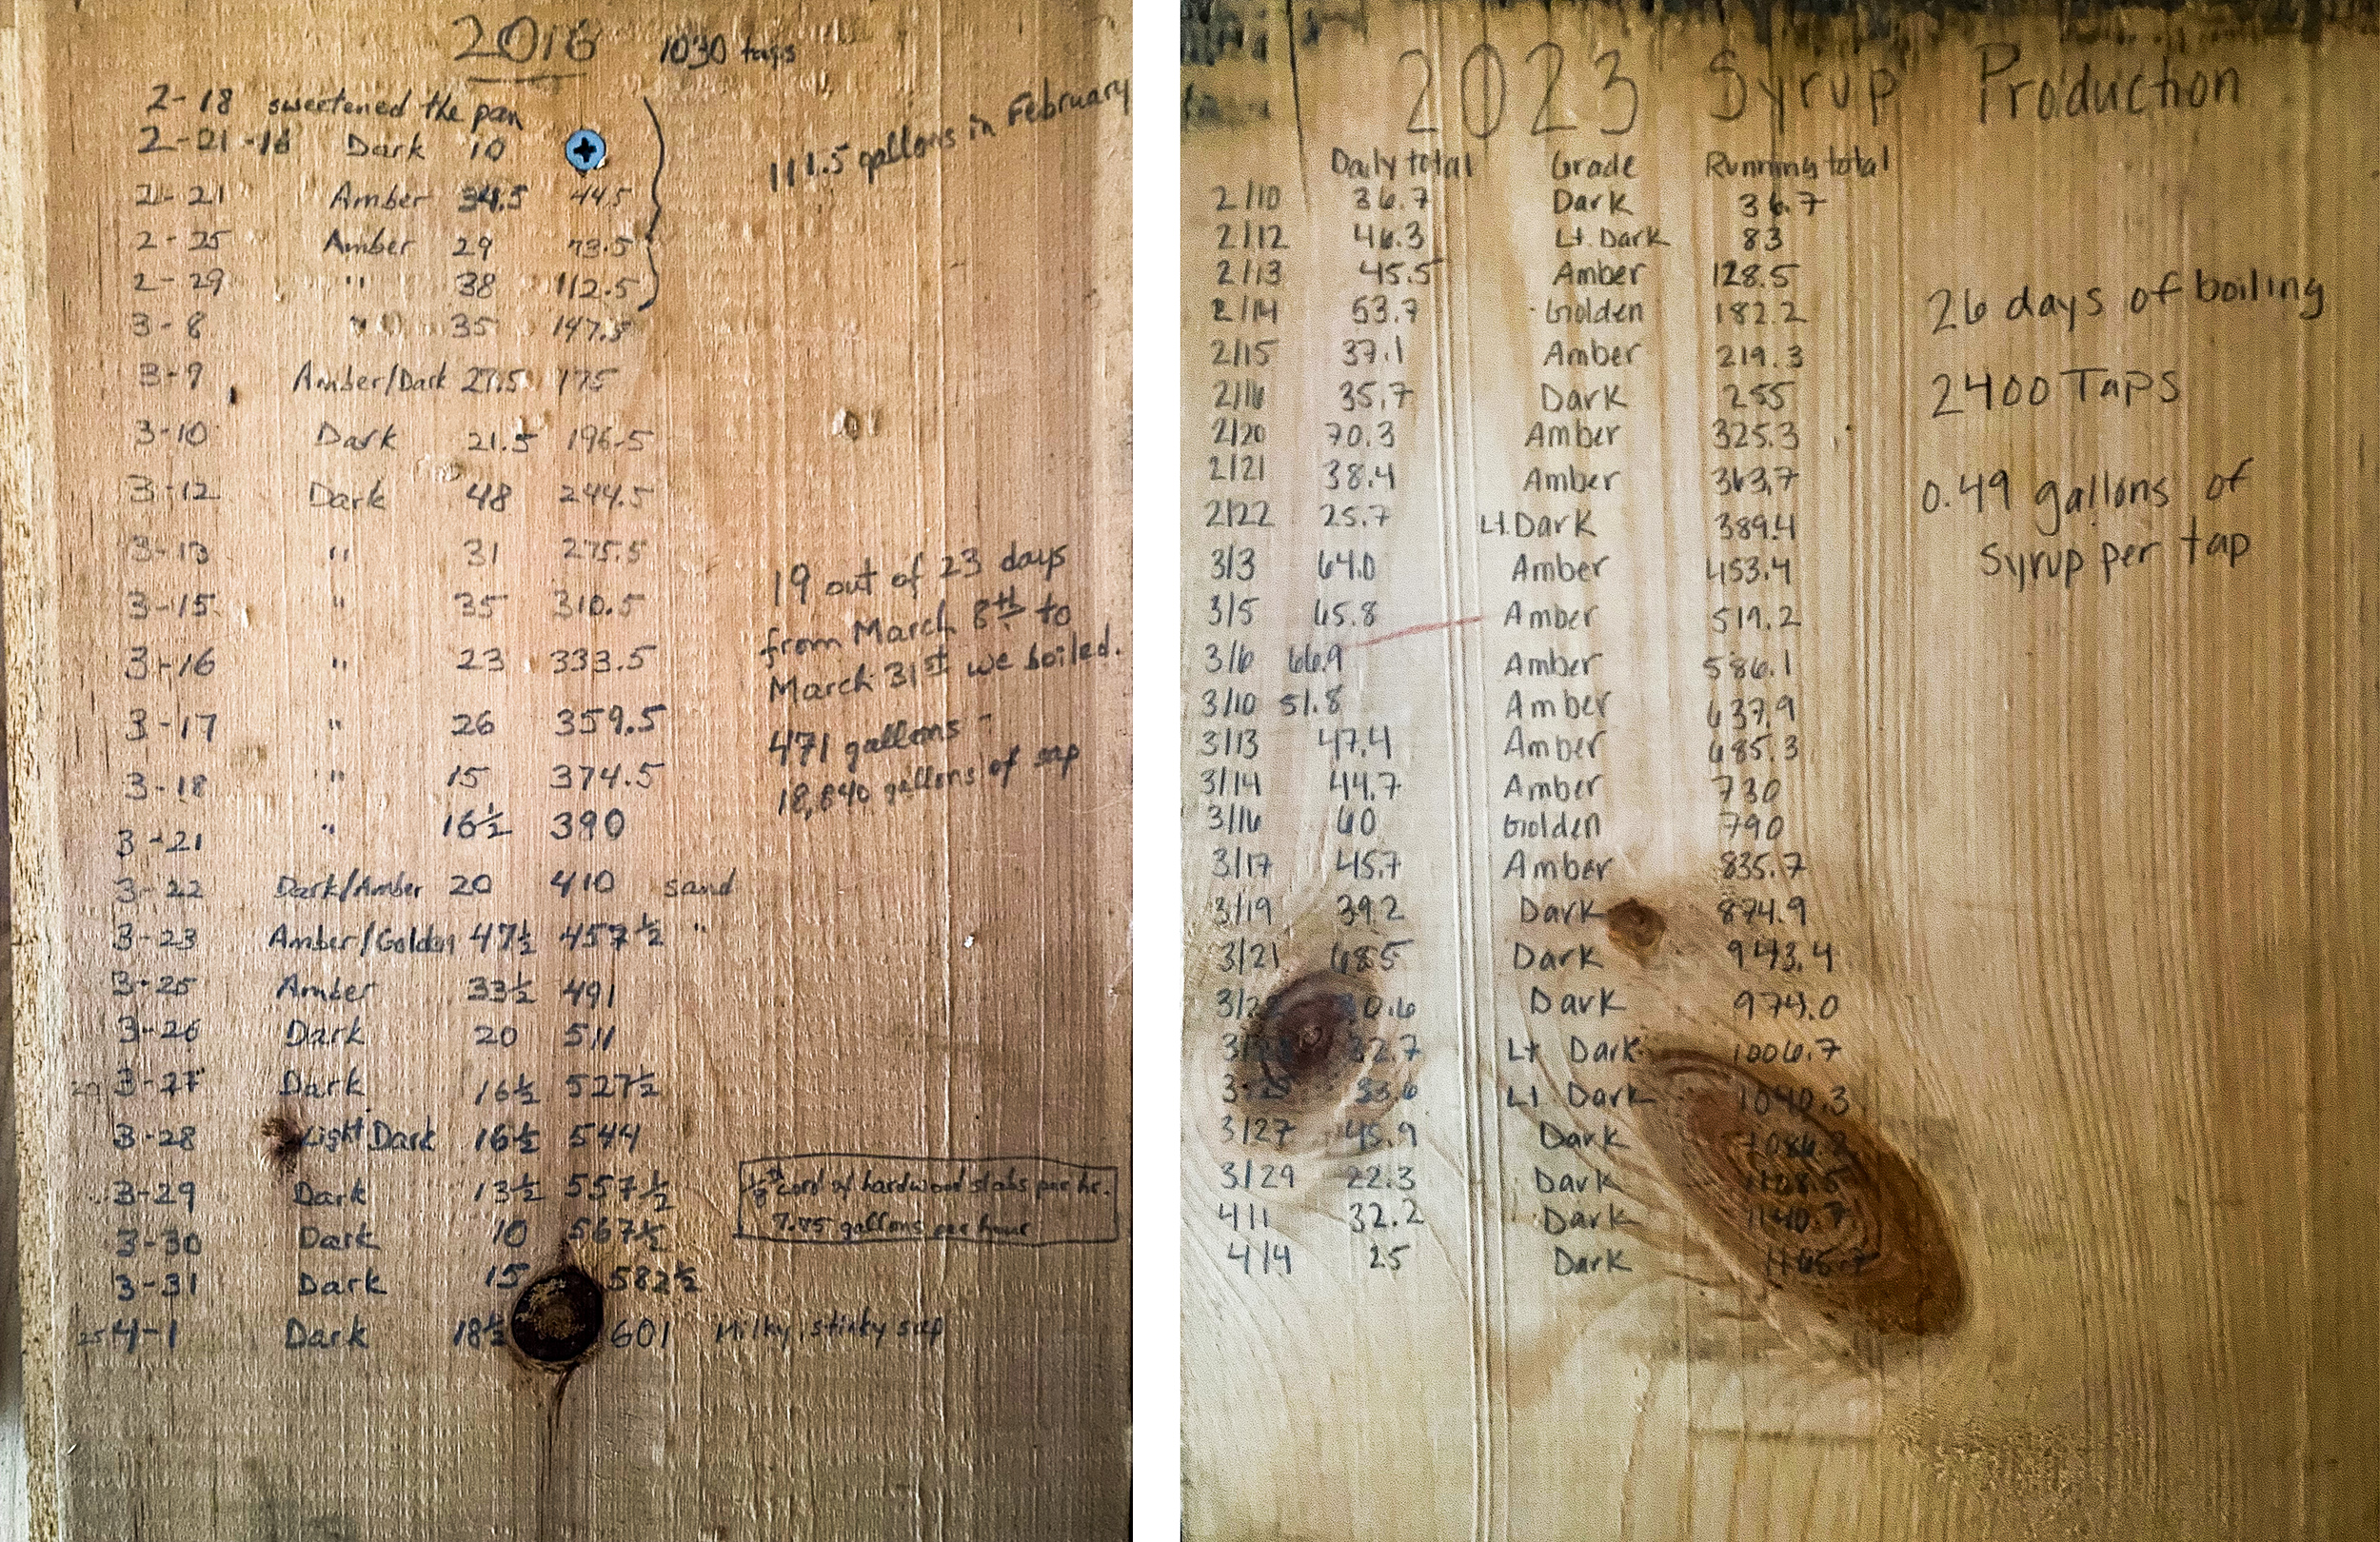 2016 1030 taps
2-18 sweetened the pan
2-21-16 Dark 10
2-21 Amber 34.5 44.5
2-25 Amber 29 73.5
2-29 " 38 112.5
111.5 gallons in February
3-8 " 35 147.5
3-9 Amber/Dark 27.5 175
3-10 Dark 21.5 196.5
3-12 Dark 48 244.5
3-13 " 31 275.5
3-15 " 35 310.5
3-16 " 23 333.5
3-17 " 26 359.5
3-18 " 15 374.5
3-21 " 16½ 390
3-22 Dark/Amber 20 410 sand
3-23 Amber/Golden 47½ 457½ "
3-25 Amber 33½ 491
3-26 Dark 20 511
3-27 Dark 16½ 527½
3-28 Light Dark 16½ 544
3-29 Dark 13½ 557½
3-30 Dark 10 567½
3-31 Dark 15 582½
4-1 Dark 18½ 601 Milky, stinky sap
19 out of 23 days
from March 8th to
March 31st we boiled.
471 gallons -
18,840 gallons of sap
cord of hardwood slabs per hr.
7.75 gallons per hour
2023 Syrup Production
Daily total Grade Running total
2/10 36.7 Dark 36.7
2/12 46.3 Lt. Dark 83
2/13 45.5 Amber 128.5
2/14 53.7 Golden 182.2
2/15 37.1 Amber 219.3
2/16 35.7 Dark 255
2/20 70.3 Amber 325.3
2/21 38.4 Amber 363.7
2/22 25.7 Lt. Dark 389.4
3/3 64.0 Amber 453.4
3/5 65.8 Amber 519.2
3/6 66.9 Amber 586.1
3/10 51.8 Amber 637.9
3/13 47.4 Amber 685.3
3/14 44.7 Amber 730
3/16 60 Golden 790
3/17 45.7 Amber 835.7
3/19 39.2 Dark 874.9
3/21 68.5 Dark 943.4
30.6 Dark 974.0
32.7 Lt Dark 1006.7
3/25 33.6 Lt Dark 1040.3
3/27 45.9 Dark 1086.2
3/29 22.3 Dark 1108.5
4/1 32.2 Dark 1140.7
4/4 25 Dark 1165.7
26 days of boiling
2400 Taps
0.49 gallons of
Syrup per tap